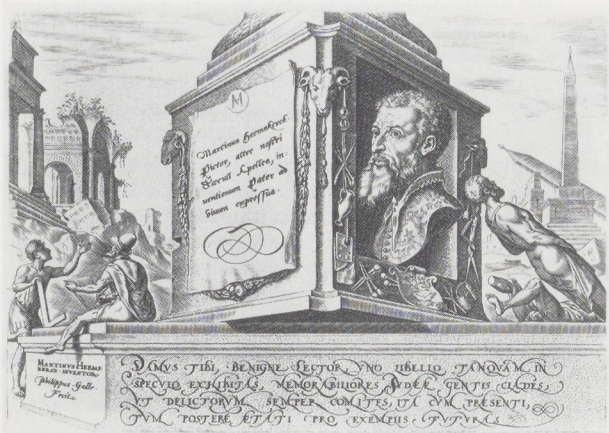 M
Martinus Heemskerck
Pictor, alter nostri
Sæculi Apelles, in-
uentionum Pater ad
viuum expressus.
MARTINVS HEEMS
KERCK INVENTOR
Philippus Galle
Fecit.
DAMVS TIBI, BENIGNE LECTOR, VNO LIBELLO TANQVAM IN
SPECVLO EXHIBITAS, MEMORABILIORES IVDEÆ GENTIS CLADES,
VT DELICTORVM SEMPER COMITES, ITA CVM PRÆSENTI,
TVM POSTERÆ ÆTATI PRO EXEMPLIS FVTVRAS